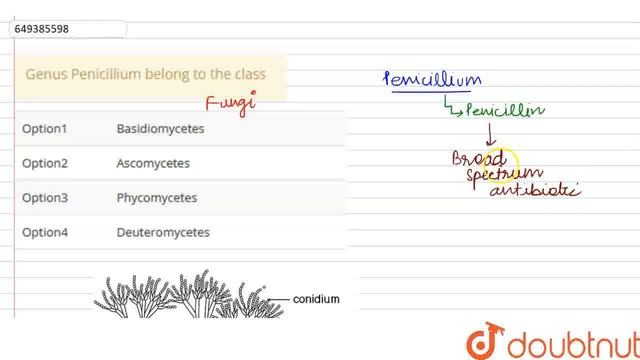 649385598
Genus Penicillium belong to the class
Fungi
Option1 Basidiomycetes
Option2 Ascomycetes
Option3 Phycomycetes
Option4 Deuteromycetes
conidium
Penicillium
Penicillin
Broad
spectrum
antibiotic
doubtnut